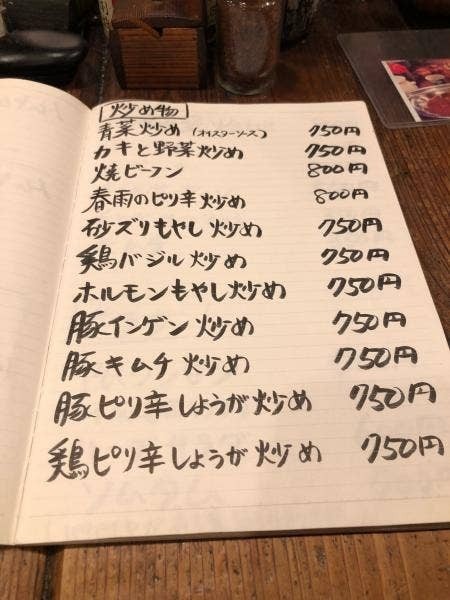 炒め物
青菜炒め (オイスターソース) 750円
カキと野菜炒め 750円
焼ビーフン 800円
春雨のピリ辛炒め 800円
砂ズリもやし炒め 750円
鶏バジル炒め 750円
ホルモンもやし炒め 750円
豚インゲン炒め 750円
豚キムチ炒め 750円
豚ピリ辛しょうが炒め 750円
鶏ピリ辛しょうが炒め 750円